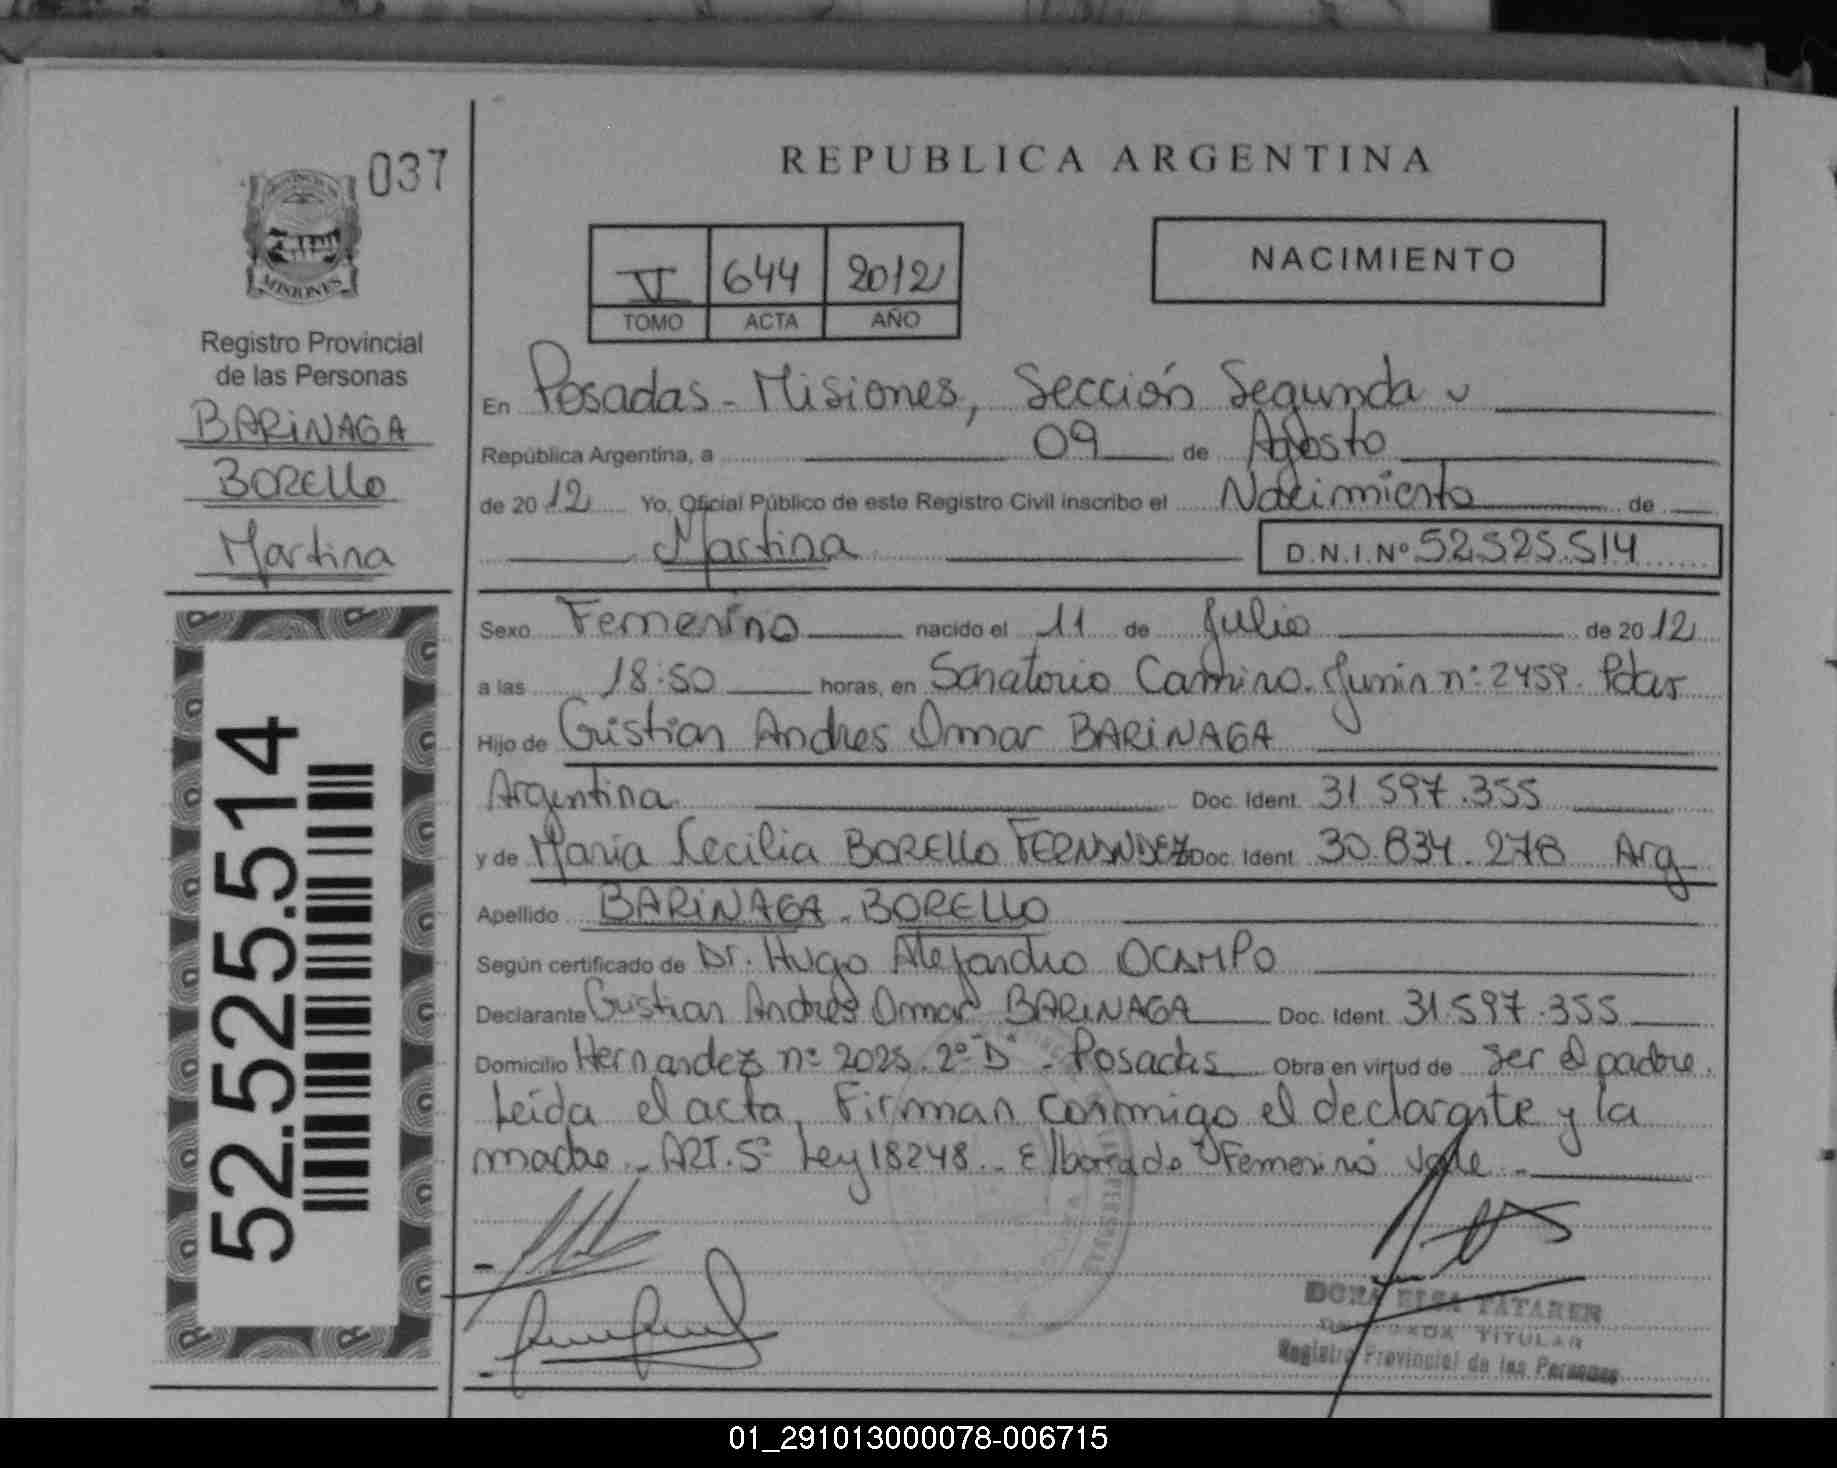 037
REPUBLICA ARGENTINA
PROVINCIA DE
MISIONES
V 644 2012
TOMO ACTA AÑO
NACIMIENTO
Registro Provincial
de las Personas
BARiNAGA
BORELLO
Martina
52.525.514
En Posadas - Misiones, Sección Segunda
República Argentina, a 09 de Agosto
de 2012 Yo, Oficial Público de este Registro Civil inscribo el Nacimiento de
Martina D.N.I.Nº 52.525.514
Sexo Femenino nacido el 11 de Julio de 2012
a las 18:50 horas, en Sanatorio Camino. Junin nº 2459. Pdas
Hijo de Cristian Andres Omar BARiNAGA
Argentina Doc. Ident. 31.597.355
y de Maria Cecilia BORELLO FERNANDEZ Doc. Ident. 30.834.278 Arg
Apellido BARiNAGA - BORELLO
Según certificado de Dr. Hugo Alejandro OCAMPO
Declarante Cristian Andres Omar BARiNAGA Doc. Ident. 31.597.355
Domicilio Hernandez nº 2025. 2º "D" - Posadas Obra en virtud de ser el padre.
Leída el acta, Firman conmigo el declarante y la
madre - ART. 5º Ley 18248 - El borrado "Femenino" vale -
TITULAR
Registro Provincial de las Personas
01_291013000078-006715